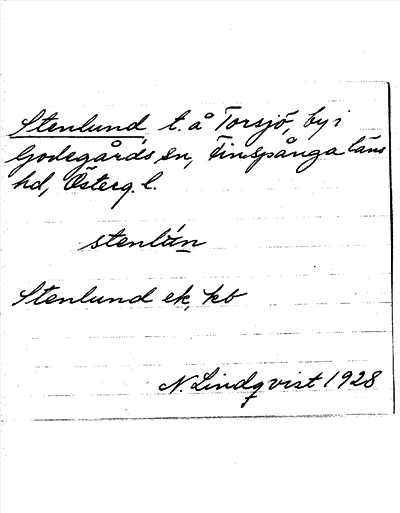 Stenlund, t. å Torsjö, by i
Godegårds sn, Finspånga läns
hd, Österg. l.
stenlún
Stenlund ek, kb
N. Lindqvist 1928